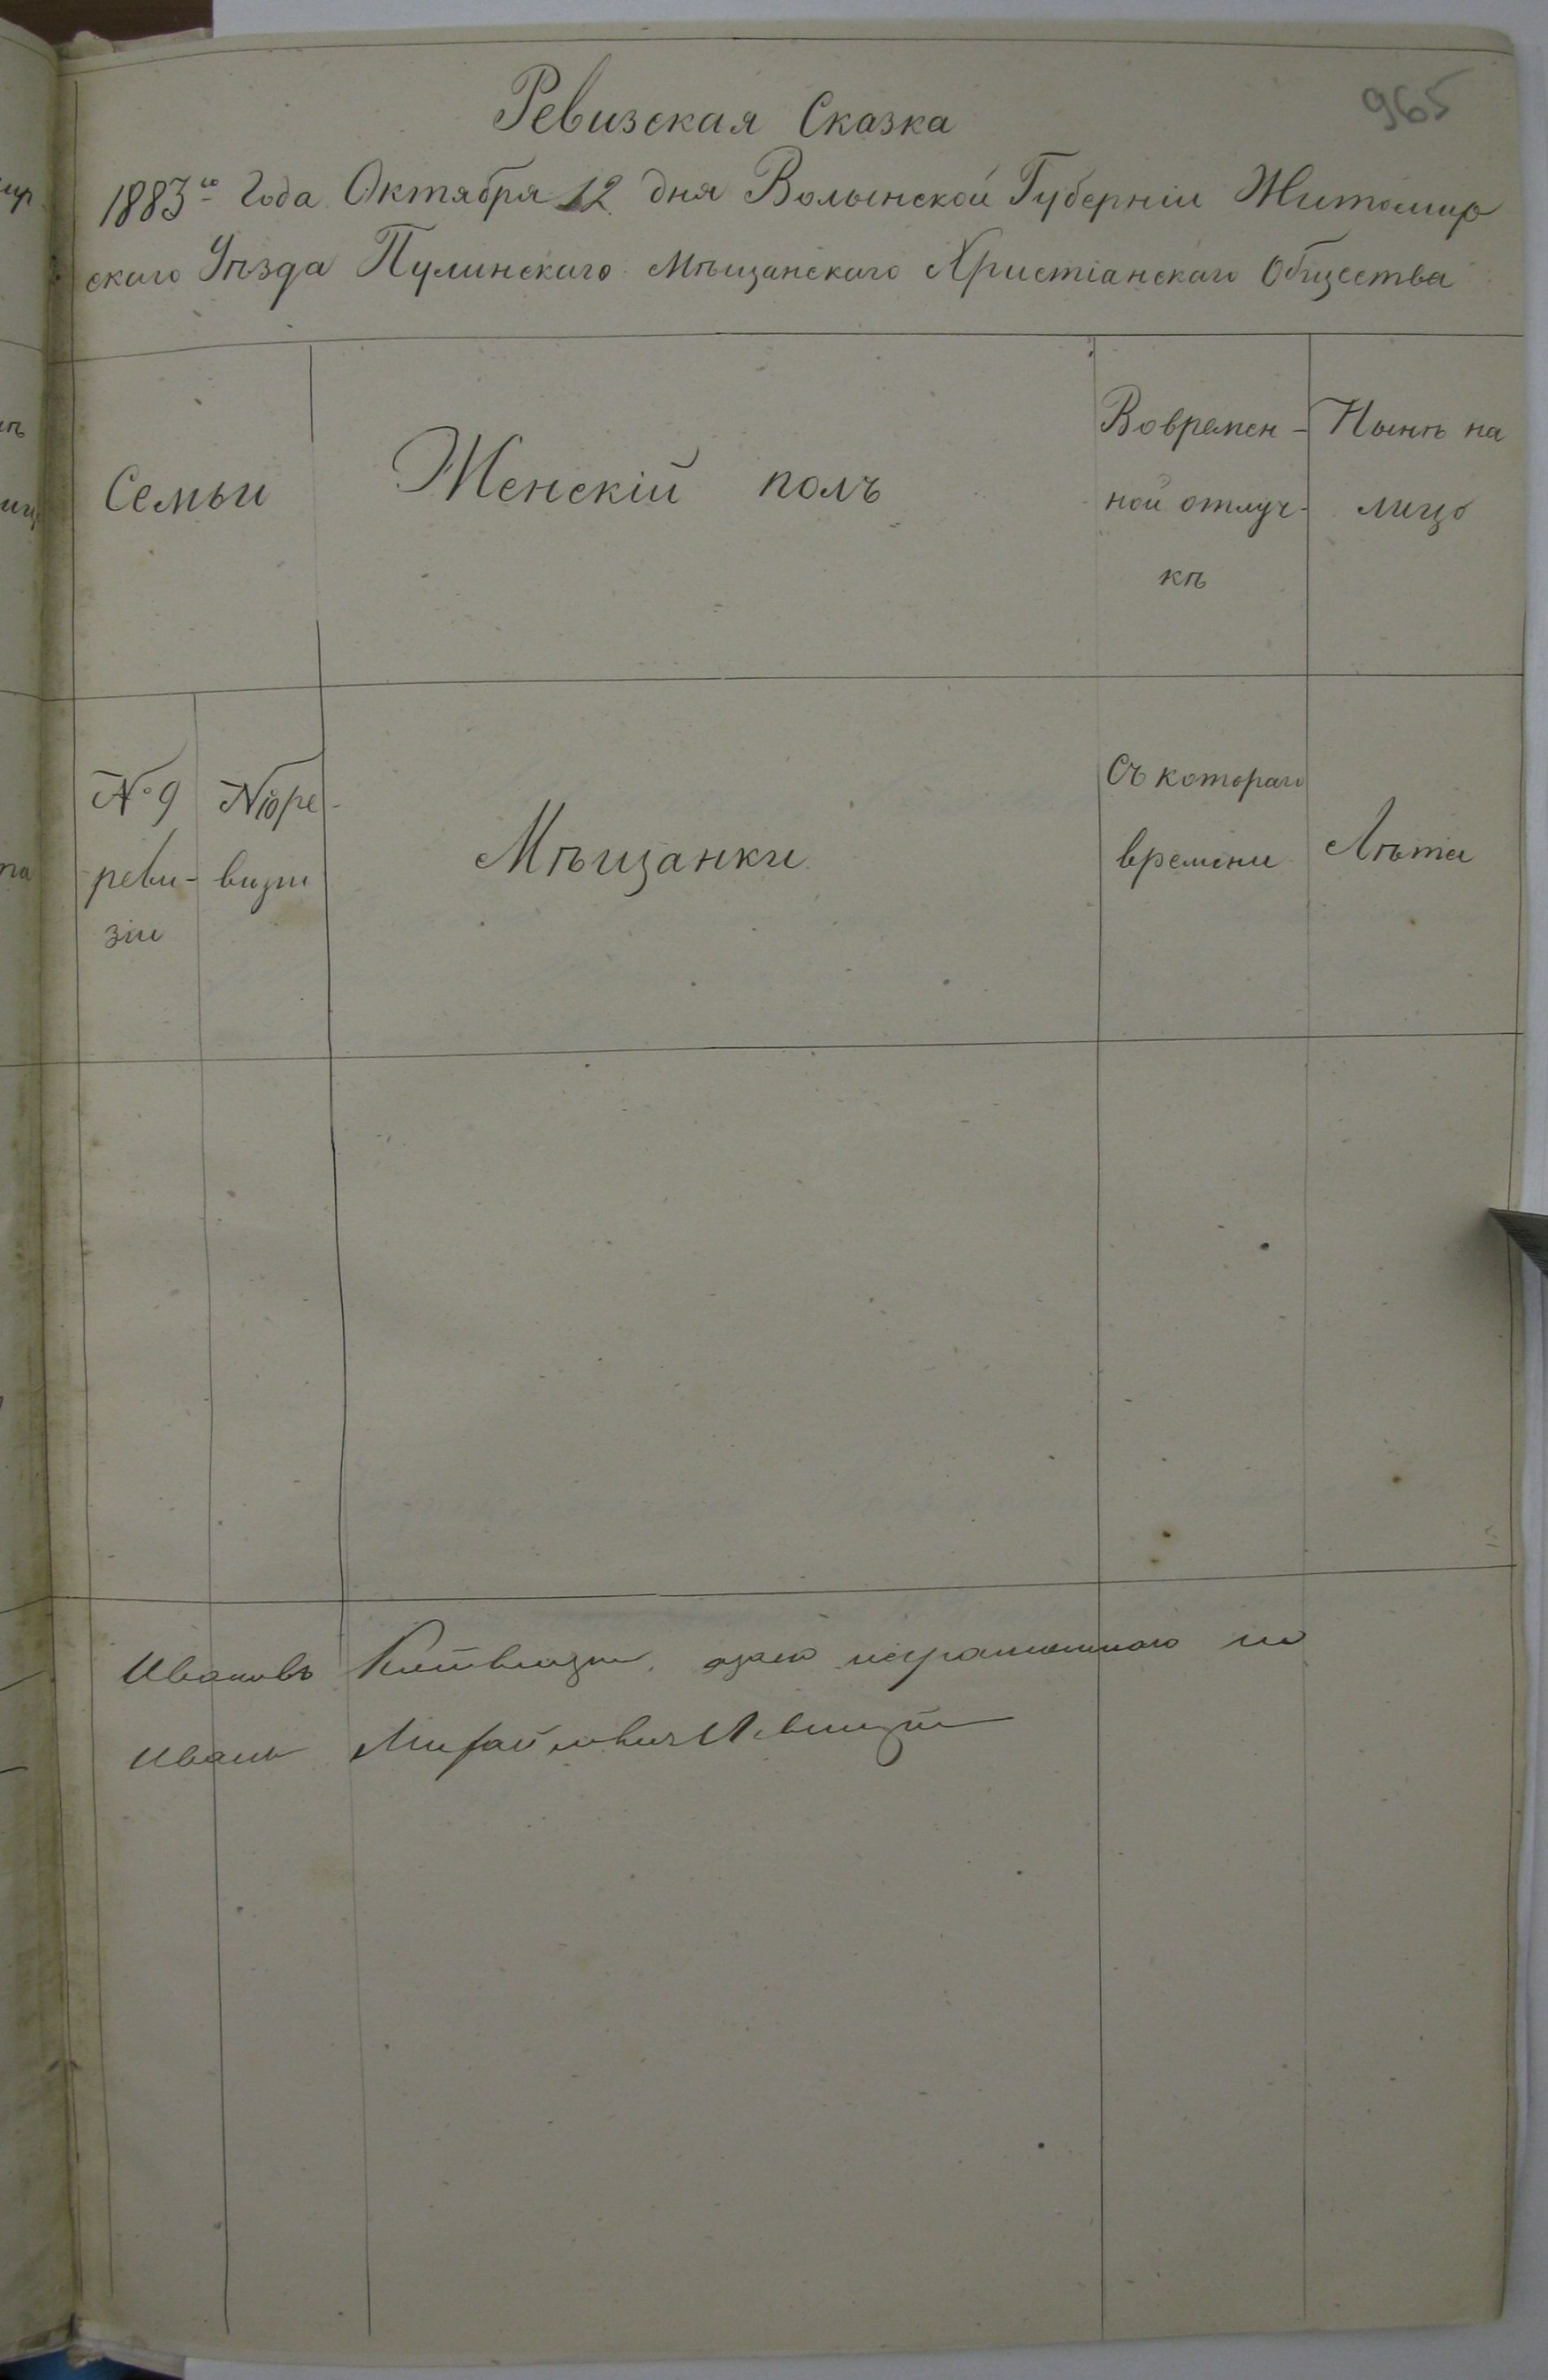 965
Ревизская Сказка
1883го Года Октября 12 дня Волынской Губерніи Житомир
скаго Уѣзда Пулинскаго Мѣщанскаго Христіанскаго Общества
Семьи
Женскій полъ
Вовремен-
ной отлуч-
кѣ
Нынѣ на
лицо
№ 9
реви-
зіи
№10ре-
визіи
Мѣщанки
Съ котораго
времени
Лѣта
Ивановъ
Иванъ